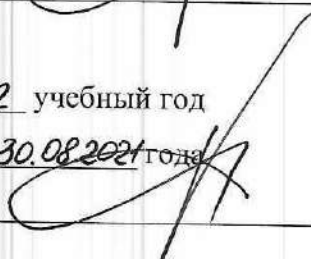 2 учебный год
30.08.2021 года